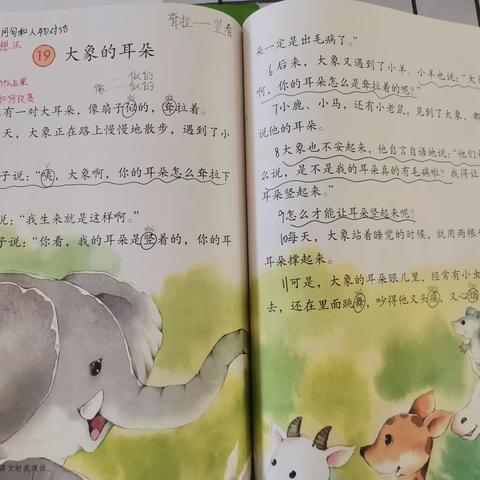 问句和人物对话
想法
耷拉——竖着
19 大象的耳朵
像……似的
似的
如何改变
有一对大耳朵，像扇子似的，耷拉着。
天，大象正在路上慢慢地散步，遇到了小
子说：“咦，大象啊，你的耳朵怎么耷拉下
说：“我生来就是这样啊。”
子说：“你看，我的耳朵是竖着的，你的耳
课文时有改动。
朵一定是出毛病了。”
6后来，大象又遇到了小羊。小羊也说：“大
啊，你的耳朵怎么是耷拉着的呢？”
7小鹿、小马，还有小老鼠，见到了大象，都
说他的耳朵。
8大象也不安起来，他自言自语地说：“他们
么说，是不是我的耳朵真的有毛病啦？我得让
耳朵竖起来。”
9怎么才能让耳朵竖起来呢？
10每天，大象站着睡觉的时候，就用两根
耳朵撑起来。
11可是，大象的耳朵眼儿里，经常有小虫
去，还在里面跳舞，吵得他又头痛，又心烦